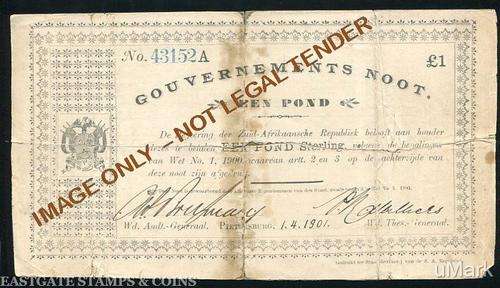 No. 43152A
£1
GOUVERNEMENTS NOOT.
EEN POND
De Regeering der Zuid-Afrikaansche Republiek belooft aan houder
dezes te betalen EEN POND Sterling, volgens de bepalingen
van Wet No. 1, 1900, waarvan artt. 2 en 5 op de achterzijde van
deze noot zijn afgedrukt.
Wd. Audt.-Generaal. PIETERSBURG, 1.4.1901. Wd. Thes.-Generaal.
IMAGE ONLY - NOT LEGAL TENDER
EASTGATE STAMPS & COINS
uMark